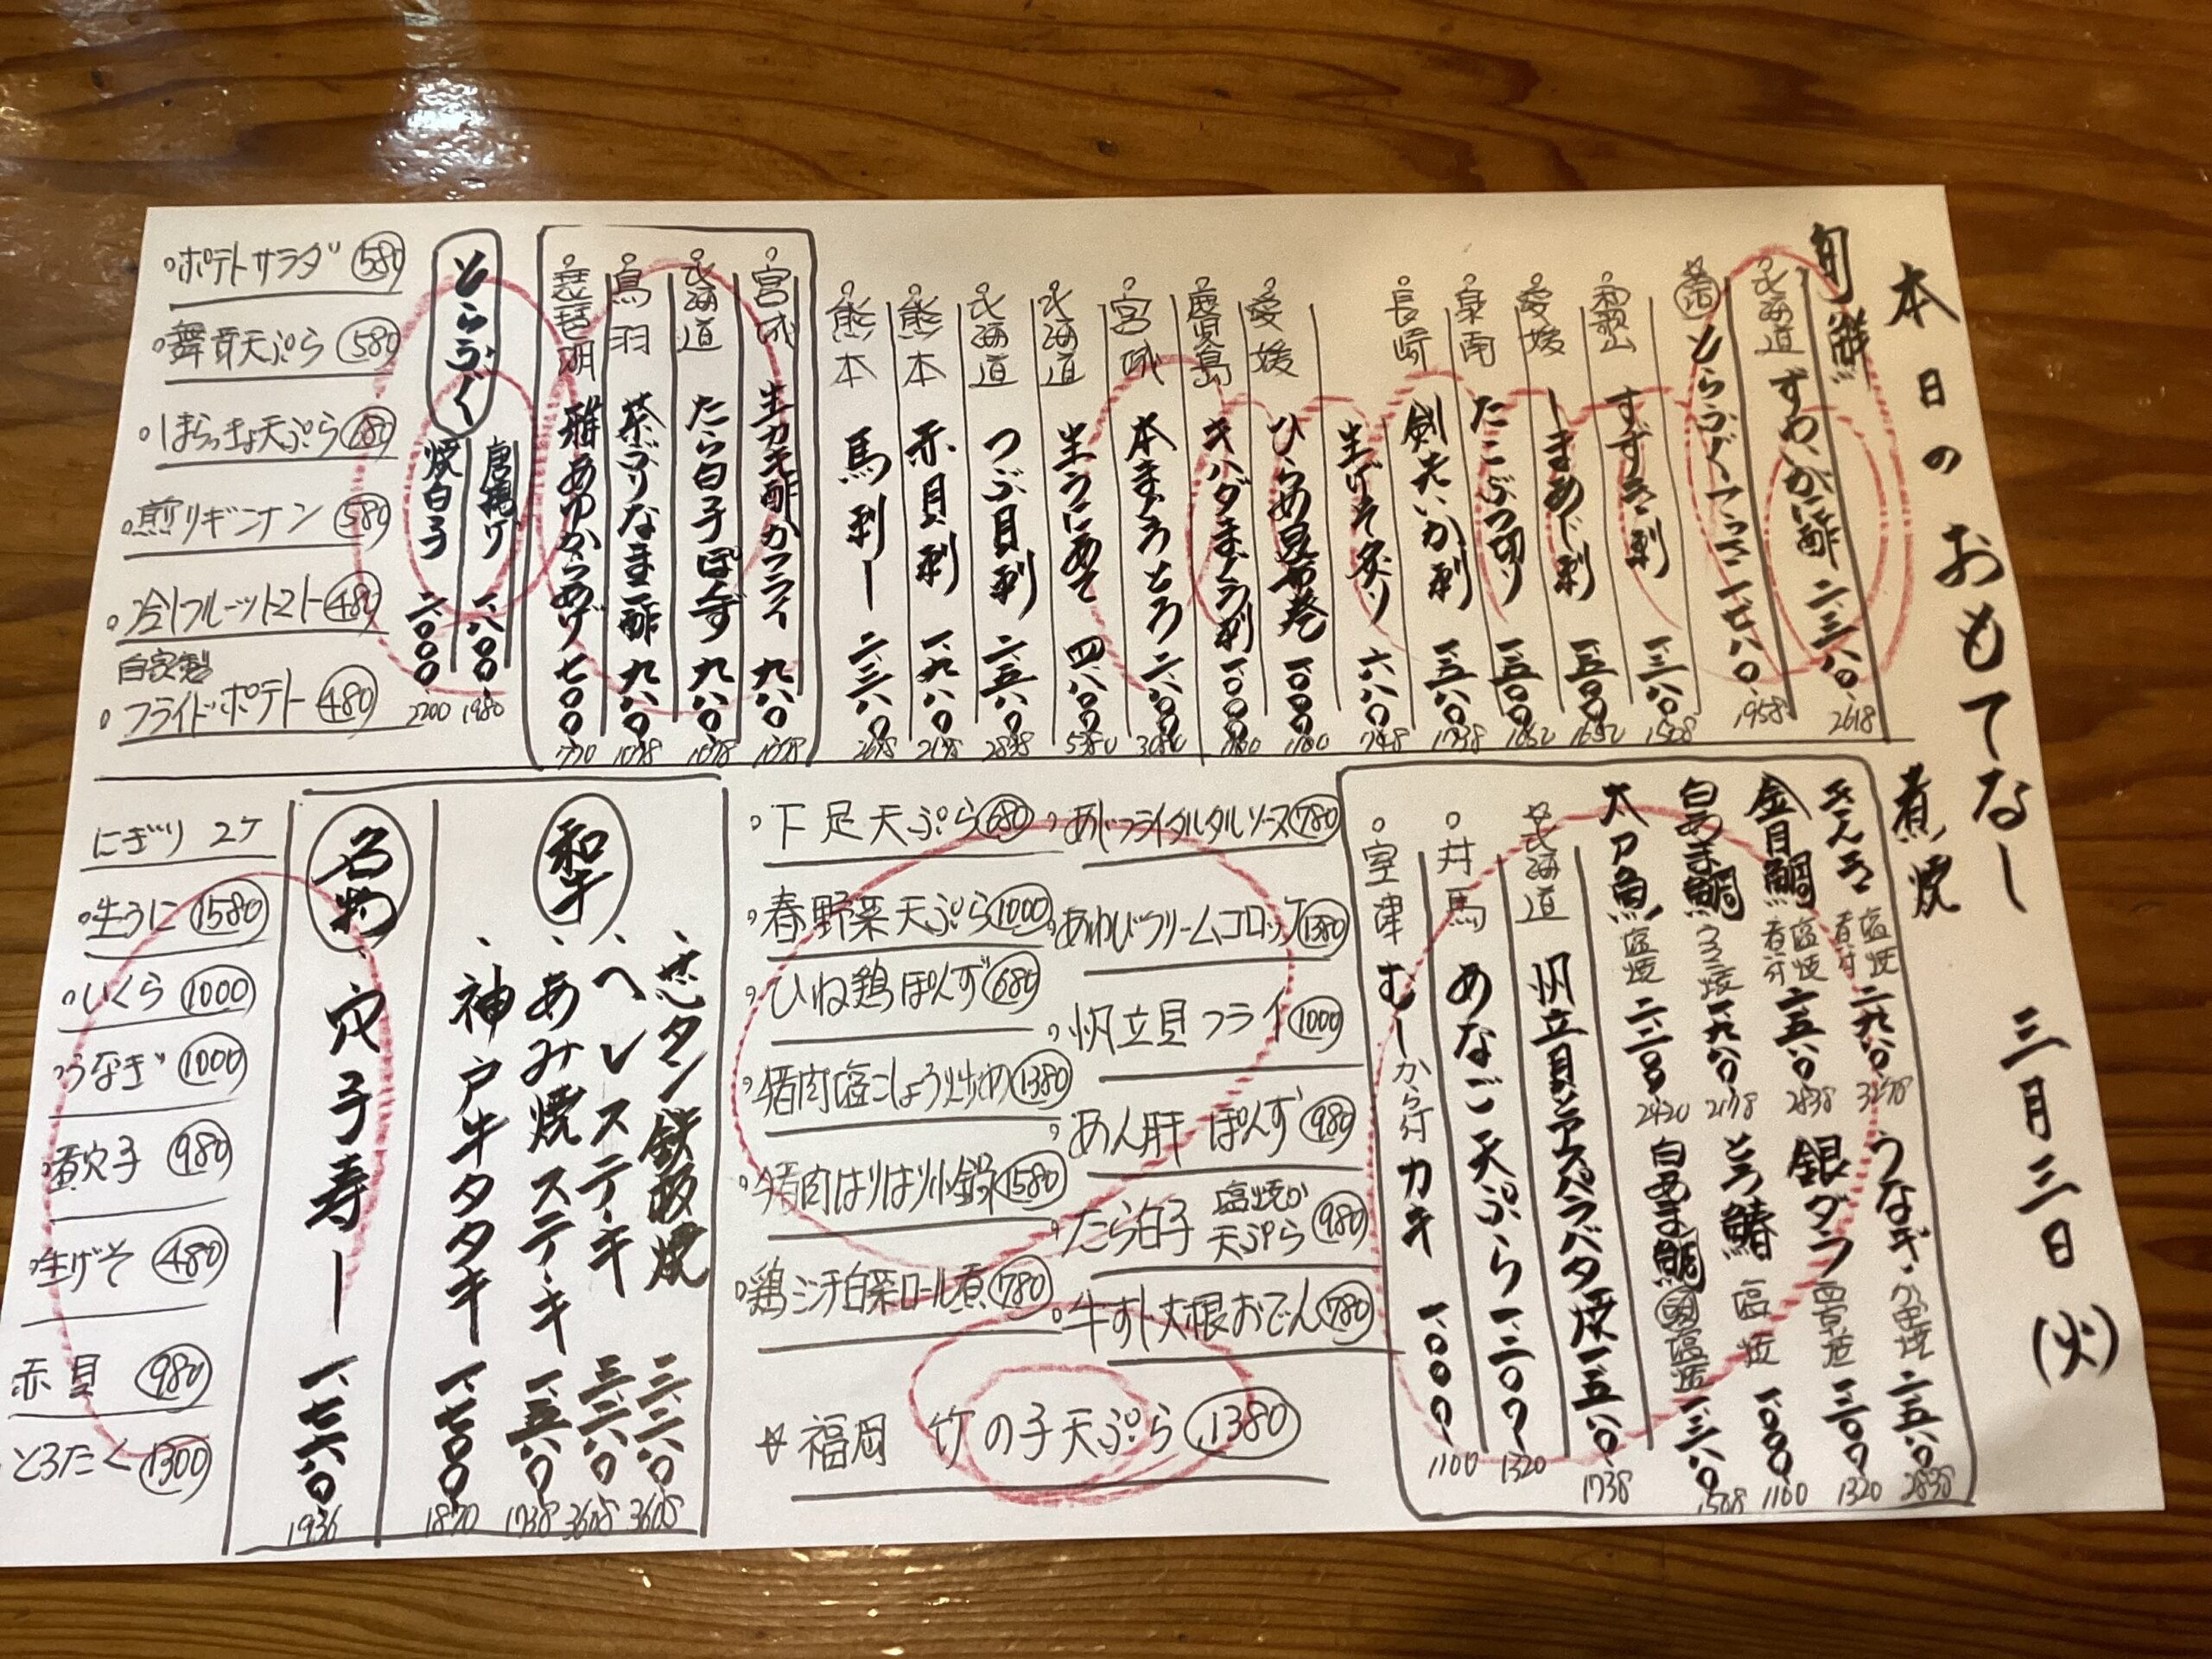 本日のおもてなし 三月三日(火)
旬鮮
北海道 ずわいがに酢 二、三八〇 2618
とらふぐてっさ 一、七八〇 1958
和歌山 すずき刺 一、三八〇 1508
愛媛 しまあじ刺 一、五〇〇 1652
泉南 たこぶつ切り 一、五〇〇 1652
長崎 剣先いか刺 一、五八〇 1738
生げそ炙り 六八〇 748
愛媛 ひらめ昆布巻 一、〇〇〇 1100
鹿児島 キハダまぐろ刺 一、〇〇〇 1100
宮城 本まぐろとろ 二、八〇〇 3080
北海道 生うにあて 四、八〇〇 5280
北海道 つぶ貝刺 二、五八〇 2838
熊本 赤貝刺 一、九八〇 2178
熊本 馬刺し 二、三八〇 2618
宮城 生カキ酢かフライ 九八〇 1078
北海道 たら白子ぽんず 九八〇 1078
鳥羽 茶ぶりなまこ酢 九八〇 1078
琵琶湖 稚あゆからあげ 七〇〇 770
とらふぐ
唐揚げ 一、八〇〇 1980
焼白子 二、〇〇〇 2200
ポテトサラダ 580
舞茸天ぷら 580
しほらっきょ天ぷら
煎りギンナン 580
冷しフルーツトマト 480
自家製
フライドポテト 480
煮焼
きんき 塩焼 煮付 二、九八〇 3278
金目鯛 塩焼 煮付 二、五八〇 2838
白あま鯛 うろこ焼 一、九八〇 2178
太刀魚 塩焼 二、二〇〇 2420
うなぎ 蒲焼 二、五八〇 2838
銀ダラ 西京焼 一、二〇〇 1320
とろ鯖 塩焼 一、〇〇〇 1100
白あま鯛 頭 塩焼 1508
北海道 帆立貝とアスパラバタ焼 一、五八〇 1738
対馬 あなご天ぷら 一、二〇〇 1320
室津 むしから付カキ 一、〇〇〇 1100
あじフライタルタルソース 780
あわびクリームコロッケ 1380
帆立貝フライ 1000
あん肝ぽんず 980
たら白子 塩焼か天ぷら 980
牛すじ大根おでん 780
下足天ぷら 680
春野菜天ぷら 1000
ひね鶏ぽんず 680
猪肉塩こしょう炒め 1380
猪肉はりはり小鍋 1580
鶏ミンチ白菜ロール煮 780
☆福岡 竹の子天ぷら 1380
和牛
芯タン鉄板焼 三、二八〇 3608
ヘレステーキ 三、二八〇 3608
あみ焼ステーキ 一、五八〇 1738
神戸牛タタキ 一、七〇〇 1870
名物
穴子寿し 一、七六〇 1936
にぎり 2ケ
生うに 1580
いくら 1000
うなぎ 1000
煮穴子 980
生げそ 480
赤貝 980
とろたく 1300